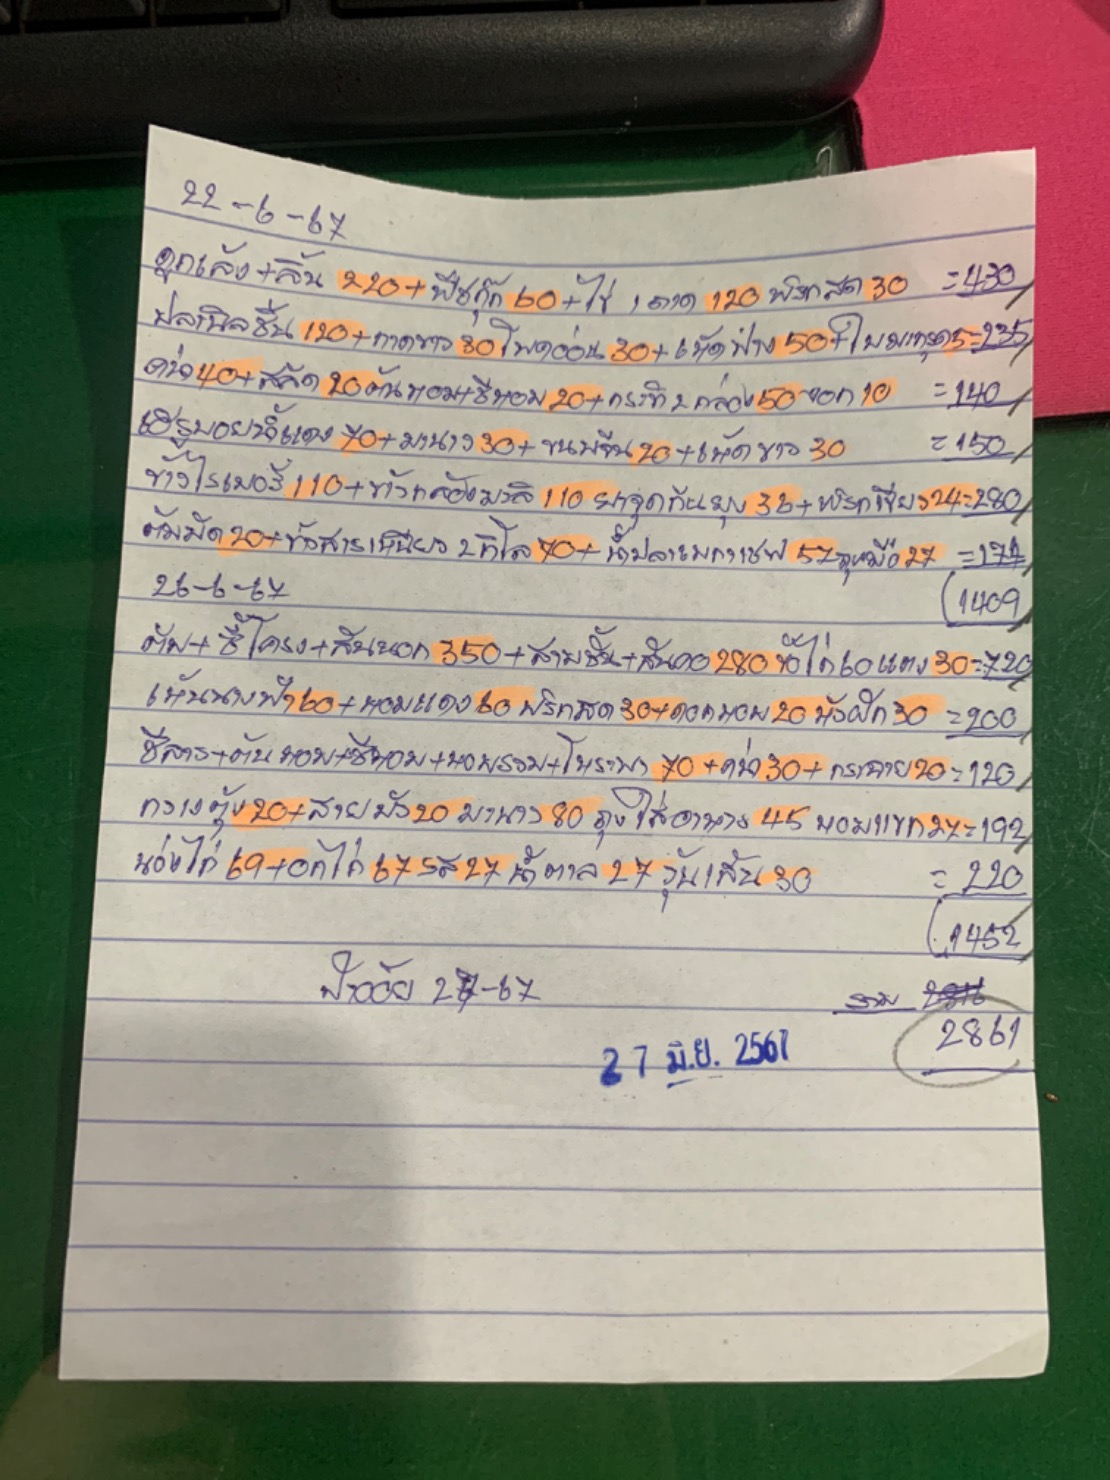 22-6-67
ดูกเล้ง+ลิ้น 220+พืชกุ๊ก 60+ไข่ 1 ถาด 120 พริกสด 30 =430
ปลานิลชิ้น 120+กาดขาว 30 โพดอ่อน 30+เห็ดฟาง 50+ใบมะกรูด5=235
คะน้า 40+สลัด 20 ต้นหอม+ชีหอม 20+กะทิ 2 กล่อง 50 งอก 10 =140
เฮรูบอยน้ำแดง 70+มะนาว 30+ขนมจีน 20+เห็ดขาว 30 =150
ข้าวไรเบอรี่ 110+ข้าวกล้องมะลิ 110 ยาจุดกันยุง 36+พริกเขียว 24=280
ต้มมัด 20+ข้าวสารเหนียว 2 กิโล 70+น้ำปลาเมกาเชฟ 57 ถุงมือ 27 =174
26-6-67
1409
ตับ+ซี่โครง+สันนอก 350+สามชั้น+สันคอ 280 ขาไก่ 60 แตง 30=720
เห็นนางฟ้า 60+หอมแดง 60 พริกสด 30+ดอกหอม 20 บัวฝัก 30 =200
ชีลาว+ต้นหอม+ชีหอม+หอมรวม+โหระพา 70+คะน้า 30+กระชาย 20=120
กวางตุ้ง 20+สายบัว 20 มะนาว 80 ถุงใส่อาหาร 45 หอมแขก 27=192
น่องไก่ 69+อกไก่ 67 รส 27 น้ำตาล 27 วุ้นเส้น 30 =220
1452
ป้าอ้อย 27-67 รวม
2861
27 มิ.ย. 2567